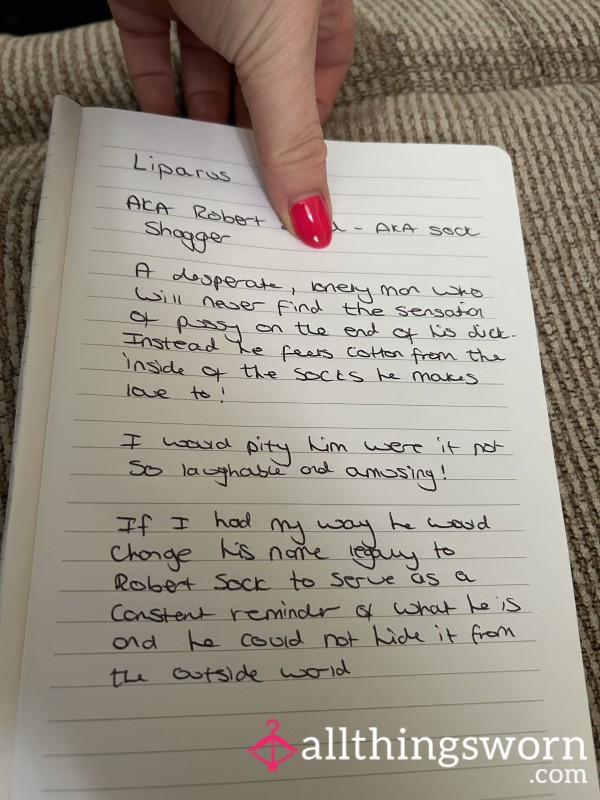 Liparus
AKA Robert - AKA Sock
Shagger
A desperate, lonely man who
will never find the sensation
of pussy on the end of his dick.
Instead he feels cotton from the
inside of the socks he makes
love to!
I would pity him were it not
so laughable and amusing!
If I had my way he would
change his name legally to
Robert Sock to serve as a
constant reminder of what he is
and he could not hide it from
the outside world
allthingsworn
.com